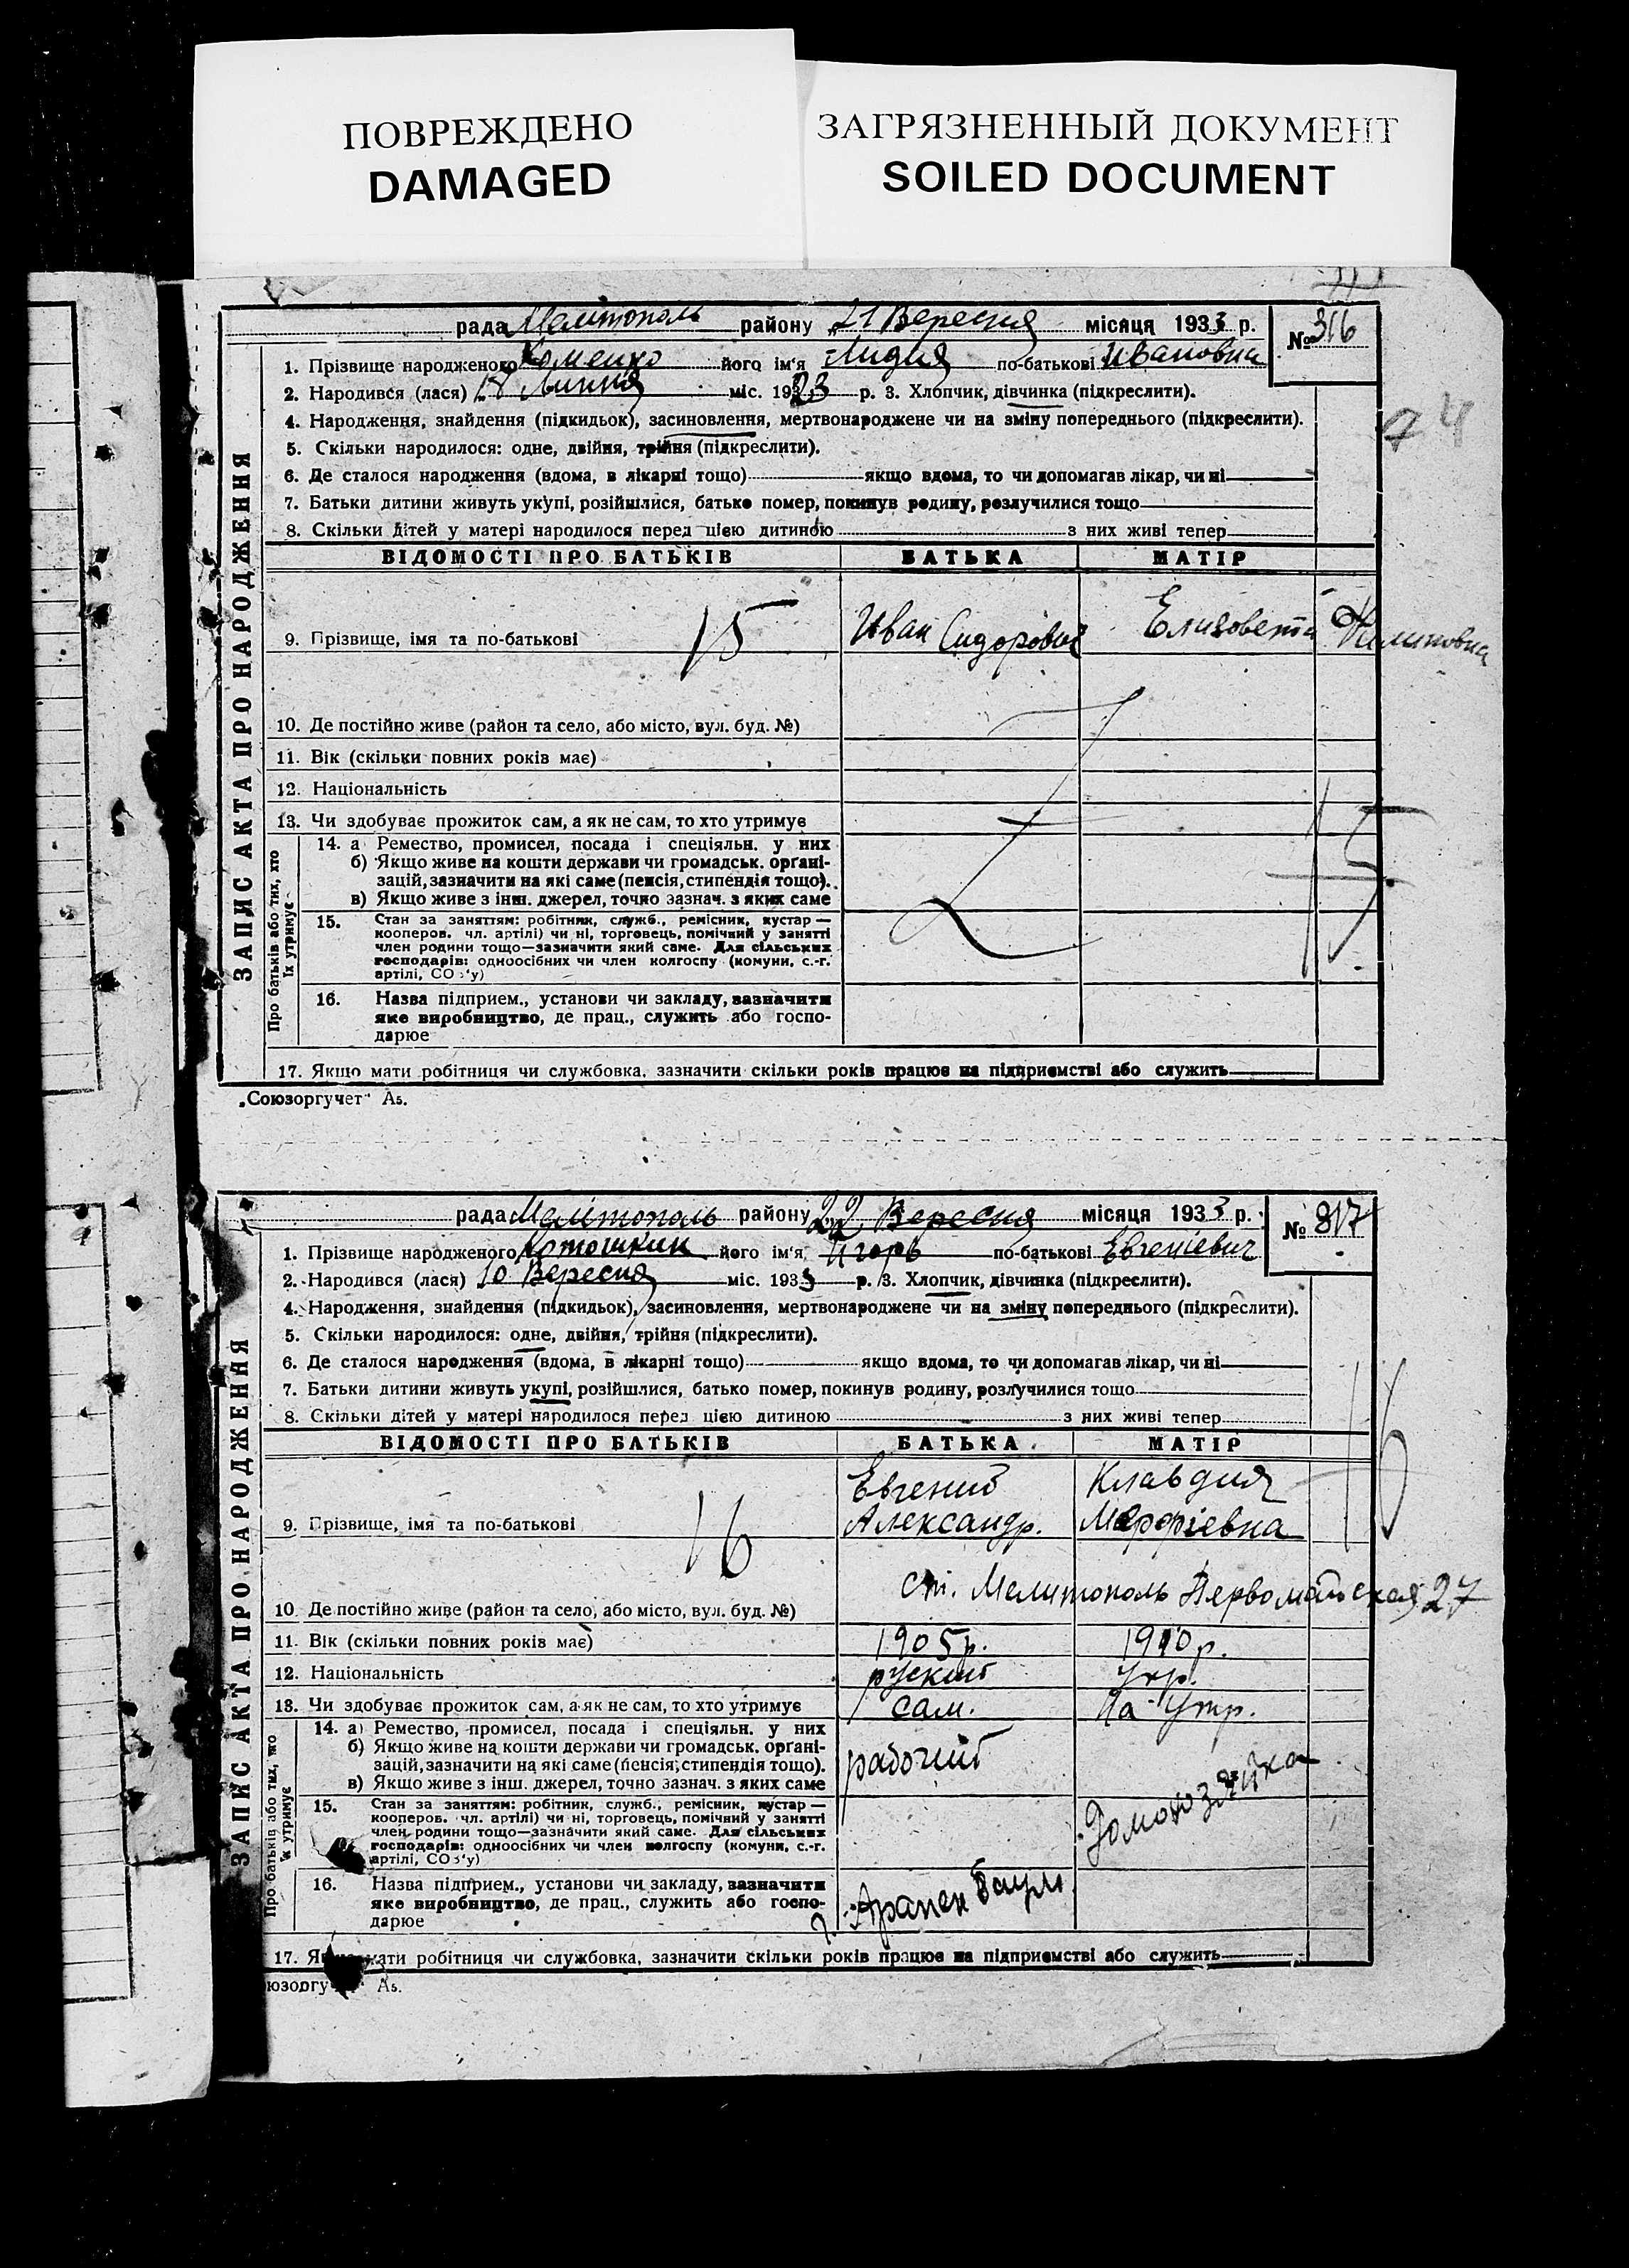 ПОВРЕЖДЕНО
DAMAGED
ЗАГРЯЗНЕННЫЙ ДОКУМЕНТ
SOILED DOCUMENT
рада Мелітополь району 21 Вересня місяця 1933 р. № 316
1. Прізвище народженого його ім'я Лидия по-батькові Ивановна
2. Народився (лася) 18 Липня міс. 1923 р. 3. Хлопчик, дівчинка (підкреслити).
4. Народження, знайдення (підкидьок), засиновлення, мертвонароджене чи на зміну попереднього (підкреслити).
74
5. Скільки народилося: одне, двійня, трійня (підкреслити).
6. Де сталося народження (вдома, в лікарні тощо) якщо вдома, то чи допомагав лікар, чи ні
7. Батьки дитини живуть укупі, розійшлися, батько помер, покинув родину, розлучилися тощо
8. Скільки дітей у матері народилося перед цією дитиною з них живі тепер
ЗАПИС АКТА ПРО НАРОДЖЕННЯ
ВІДОМОСТІ ПРО БАТЬКІВ БАТЬКА МАТІР
9. Прізвище, імя та по-батькові 15 Иван Сидорович Елизовета
10. Де постійно живе (район та село, або місто, вул. буд. №)
11. Вік (скільки повних років має)
12. Національність
13. Чи здобуває прожиток сам, а як не сам, то хто утримує
15
Про батьків або тих, хто їх утримує
14. а Ремество, промисел, посада і спеціяльн. у них
б) Якщо живе на кошти держави чи громадськ. орґані-
зацій, зазначити на які саме (пенсія, стипендія тощо).
в) Якщо живе з інш. джерел, точно зазнач. з яких саме
15. Стан за заняттям: робітник, служб., ремісник, кустар —
кооперов. чл. артілі) чи ні, торговець, помічний у занятті
член родини тощо—зазначити який саме. Для сільських
господарів: одноосібних чи член колгоспу (комуни, с.-г.
артілі, СОЗ'у)
16. Назва підприєм., установи чи закладу, зазначити
яке виробництво, де прац., служить або госпо-
дарює
17. Якщо мати робітниця чи службовка, зазначити скільки років працює на підприємстві або служить
„Союзоргучет" А5.
рада Мелітополь району 22 Вересня місяця 1933 р. № 317
1. Прізвище народженого його ім'я Игорь по-батькові Евгеніевич
2. Народився (лася) 10 Вересня міс. 1933 р. 3. Хлопчик, дівчинка (підкреслити).
4. Народження, знайдення (підкидьок), засиновлення, мертвонароджене чи на зміну попереднього (підкреслити).
5. Скільки народилося: одне, двійня, трійня (підкреслити).
6. Де сталося народження (вдома, в лікарні тощо) якщо вдома, то чи допомагав лікар, чи ні
7. Батьки дитини живуть укупі, розійшлися, батько помер, покинув родину, розлучилися тощо
8. Скільки дітей у матері народилося перед цією дитиною з них живі тепер
ЗАПИС АКТА ПРО НАРОДЖЕННЯ
ВІДОМОСТІ ПРО БАТЬКІВ БАТЬКА МАТІР
16
Евгений Клавдия
9. Прізвище, імя та по-батькові 16 Александр.
ст. Мелитополь Первомайская 27
10. Де постійно живе (район та село, або місто, вул. буд. №)
11. Вік (скільки повних років має) 1905р. 1910р.
12. Національність руский укр.
13. Чи здобуває прожиток сам, а як не сам, то хто утримує сам. На утр.
Про батьків або тих, хто їх утримує
14. а) Ремество, промисел, посада і спеціяльн. у них
б) Якщо живе на кошти держави чи громадськ. орґані- рабочий
зацій, зазначити на які саме (пенсія, стипендія тощо).
в) Якщо живе з інш. джерел, точно зазнач. з яких саме
15. Стан за заняттям: робітник, служб., ремісник, кустар —
кооперов. чл. артілі) чи ні, торговець, помічний у занятті
член родини тощо—зазначити який саме. Для сільських
господарів: одноосібних чи член колгоспу (комуни, с.-г.
артілі, СОЗ'у)
16. Назва підприєм., установи чи закладу, зазначити
яке виробництво, де прац., служить або госпо-
дарює
17. мати робітниця чи службовка, зазначити скільки років працює на підприємстві або служить
А5.